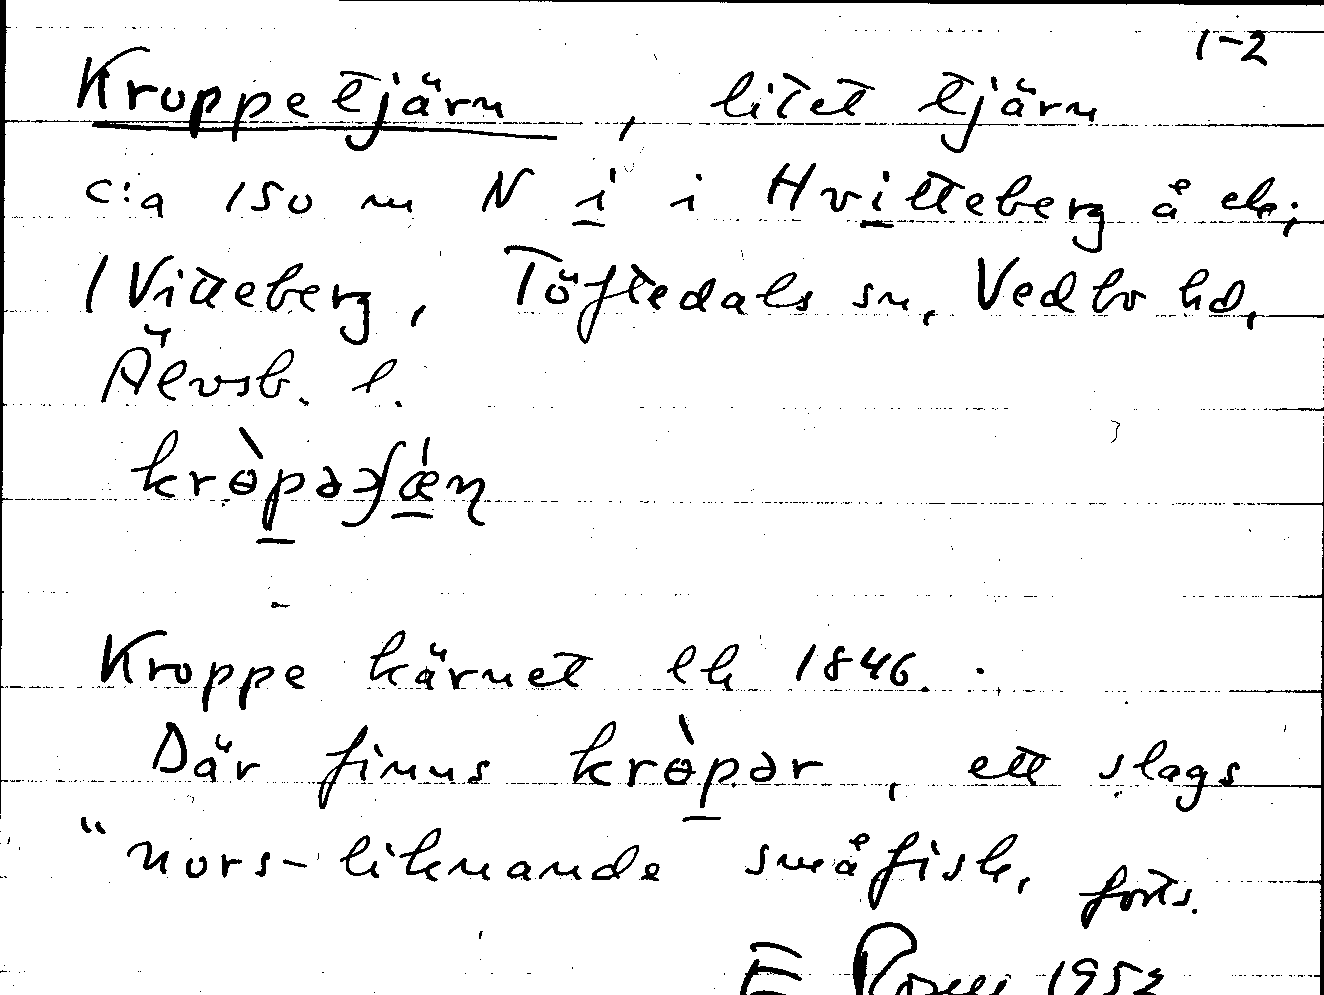 1-2
Kroppetjärn, litet tjärn
c:a 150 m N i i Hvitteberg å ek;
1 Vitteberg, Töftedals sn, Vedbo hd,
Älvsb. l.
krɵ̀pəɟǽɳ
Kroppe kärnet ek 1846.
Där finns krɵ̀pər, ett slags
"nors-liknande småfisk, forts.
E 1952